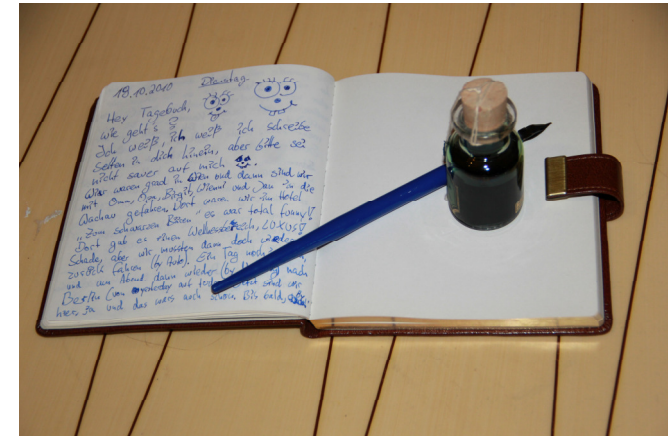 19.10.2010 Dienstag
Hey Tagebuch,
wie geht's?
Ich weiß, ich weiß ich schreibe
selten in dich hinein, aber bitte sei
nicht sauer auf mich
Wir waren gerad in Wien und dann sind wir
mit Birgit, und in die
Wachau gefahren. Dort waren wir im Hotel
"Zum schwarzen Bären", es war total funny!
Dort gab es einen Wellnessbereich, LUXUS!
Schade, aber wir mussten dann doch wieder
zurück fahren (by Auto). Ein Tag noch
und am Abend dann wieder (by nach
Berlin sind wir
hier, ja und das wars auch schon. Bis bald,